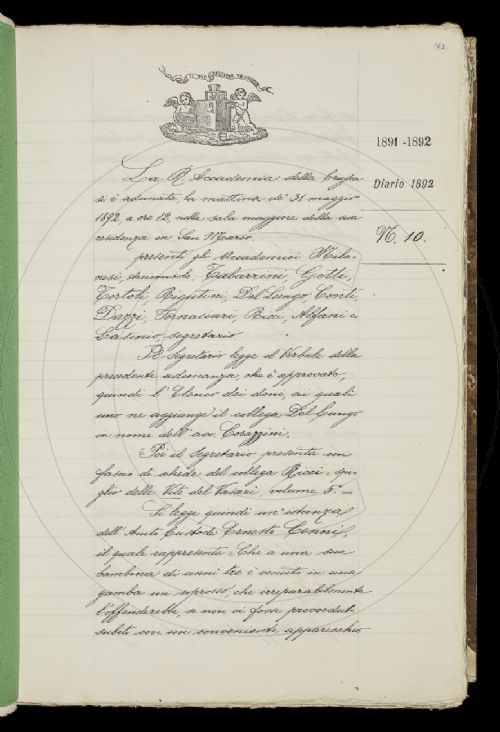 1891-1892
Diario 1892
N. 10.
La R. Accademia della Crusca
si è adunata, la mattina de' 31 maggio
1892, a ore 12, nella sala maggiore della sua
residenza in San Marco.
presenti gli Accademici Mila-
nesi, Tabarrini, Gotti,
Tortoli, Rigutini, Del Lungo, Conti,
Dazzi, Tornaciari, Ricci, Alfani e
Casini, segretario.
Il Segretario legge il Verbale della
precedente adunanza, che è approvato;
quindi l'Elenco dei doni, ai quali
uno ne aggiunge il collega Del Lungo
in nome dell' acc. Corazzini.
Poi il Segretario presenta un
fascio di schede del collega Ricci, spo-
glio delle Vite del Vasari, volume 5.=
Si legge quindi un' istanza
dell' Aiuto Custode Ernesto Cenni,
il quale rappresenta: Che a una sua
bambina di anni tre è venuto in una
gamba un soprosso, che irreparabilmente
l'offenderebbe, se non vi fosse provveduto
subito con un conveniente apparecchio